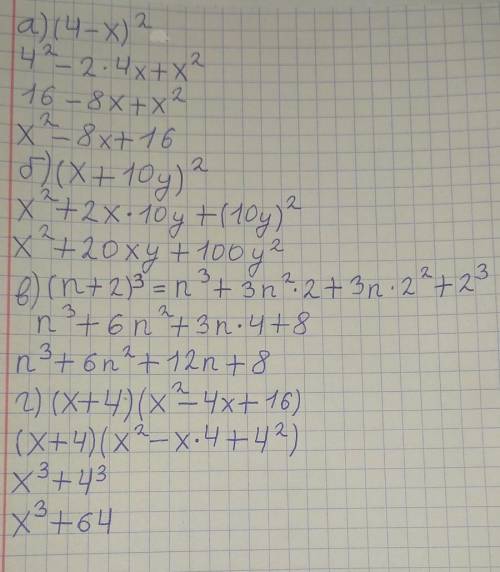 а) (4-x)²
4² - 2·4x + x²
16 - 8x + x²
x² - 8x + 16
б) (x + 10y)²
x² + 2x·10y + (10y)²
x² + 20xy + 100y²
в) (n+2)³ = n³ + 3n²·2 + 3n·2² + 2³
n³ + 6n² + 3n·4 + 8
n³ + 6n² + 12n + 8
г) (x+4)(x² - 4x + 16)
(x+4)(x² - x·4 + 4²)
x³ + 4³
x³ + 64